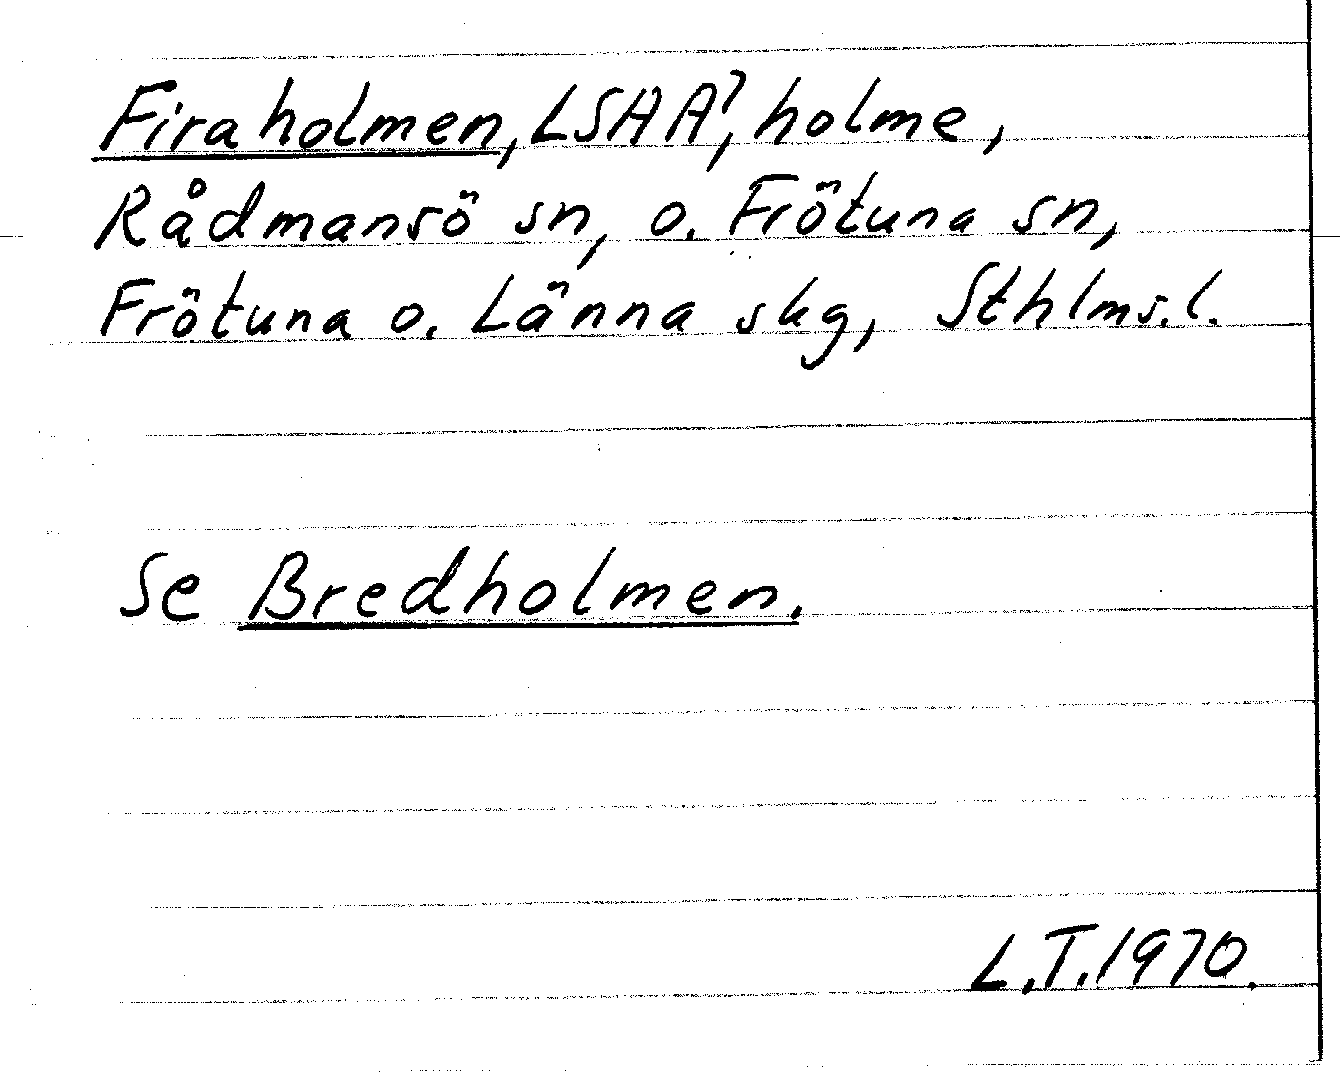 Firaholmen, LSAA⁷, holme,
Rådmansö sn, o. Frötuna sn,
Frötuna o. Länna skg, Sthlms. l.
Se Bredholmen.
L.T. 1970.